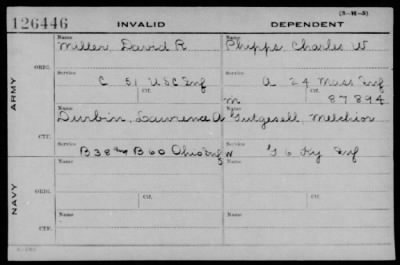 (3-H-5)
126446 INVALID DEPENDENT
Name Name
Miller, David R Phipps, Charles W
ORIG.
Service Service
C 51 USC Inf A 24 Mass Inf
Ctf. Ctf.
ARMY
m 87894
Name Name
Durbin, Lawrence A Gutgesell, Melchior
CTF.
Service Service
B 38th & B 60 Ohio Inf W F 6 Ky Inf
Name Name
ORIG.
Service Ctf. Service Ctf.
NAVY
Name Name
CTF.
Service Service